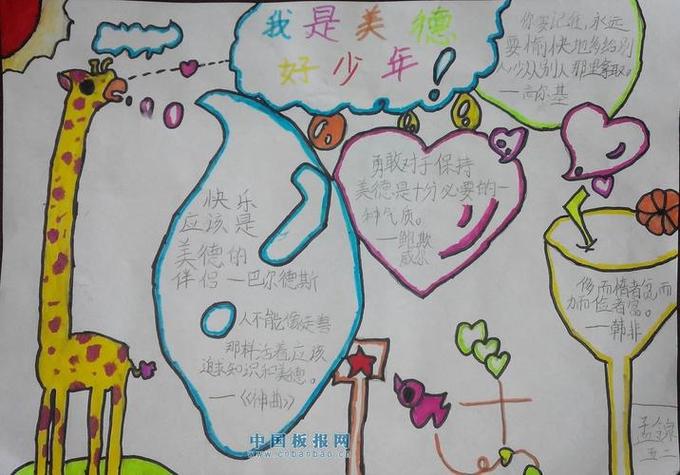 我是美德
好少年!
你要记住,永远
要愉快地多给别
人少从别人那里拿取。
——高尔基
勇敢对于保持
美德是十分必要的一
种气质。
——鲍斯
威尔
快乐
应该是
美德的
伴侣——巴尔德斯
人不能像走兽
那样活着应该
追求知识和美德。
——《神曲》
侈而惰者贫而
力而俭者富。
——韩非
中国板报网
www.cnbanbao.cn
孟锦
五二